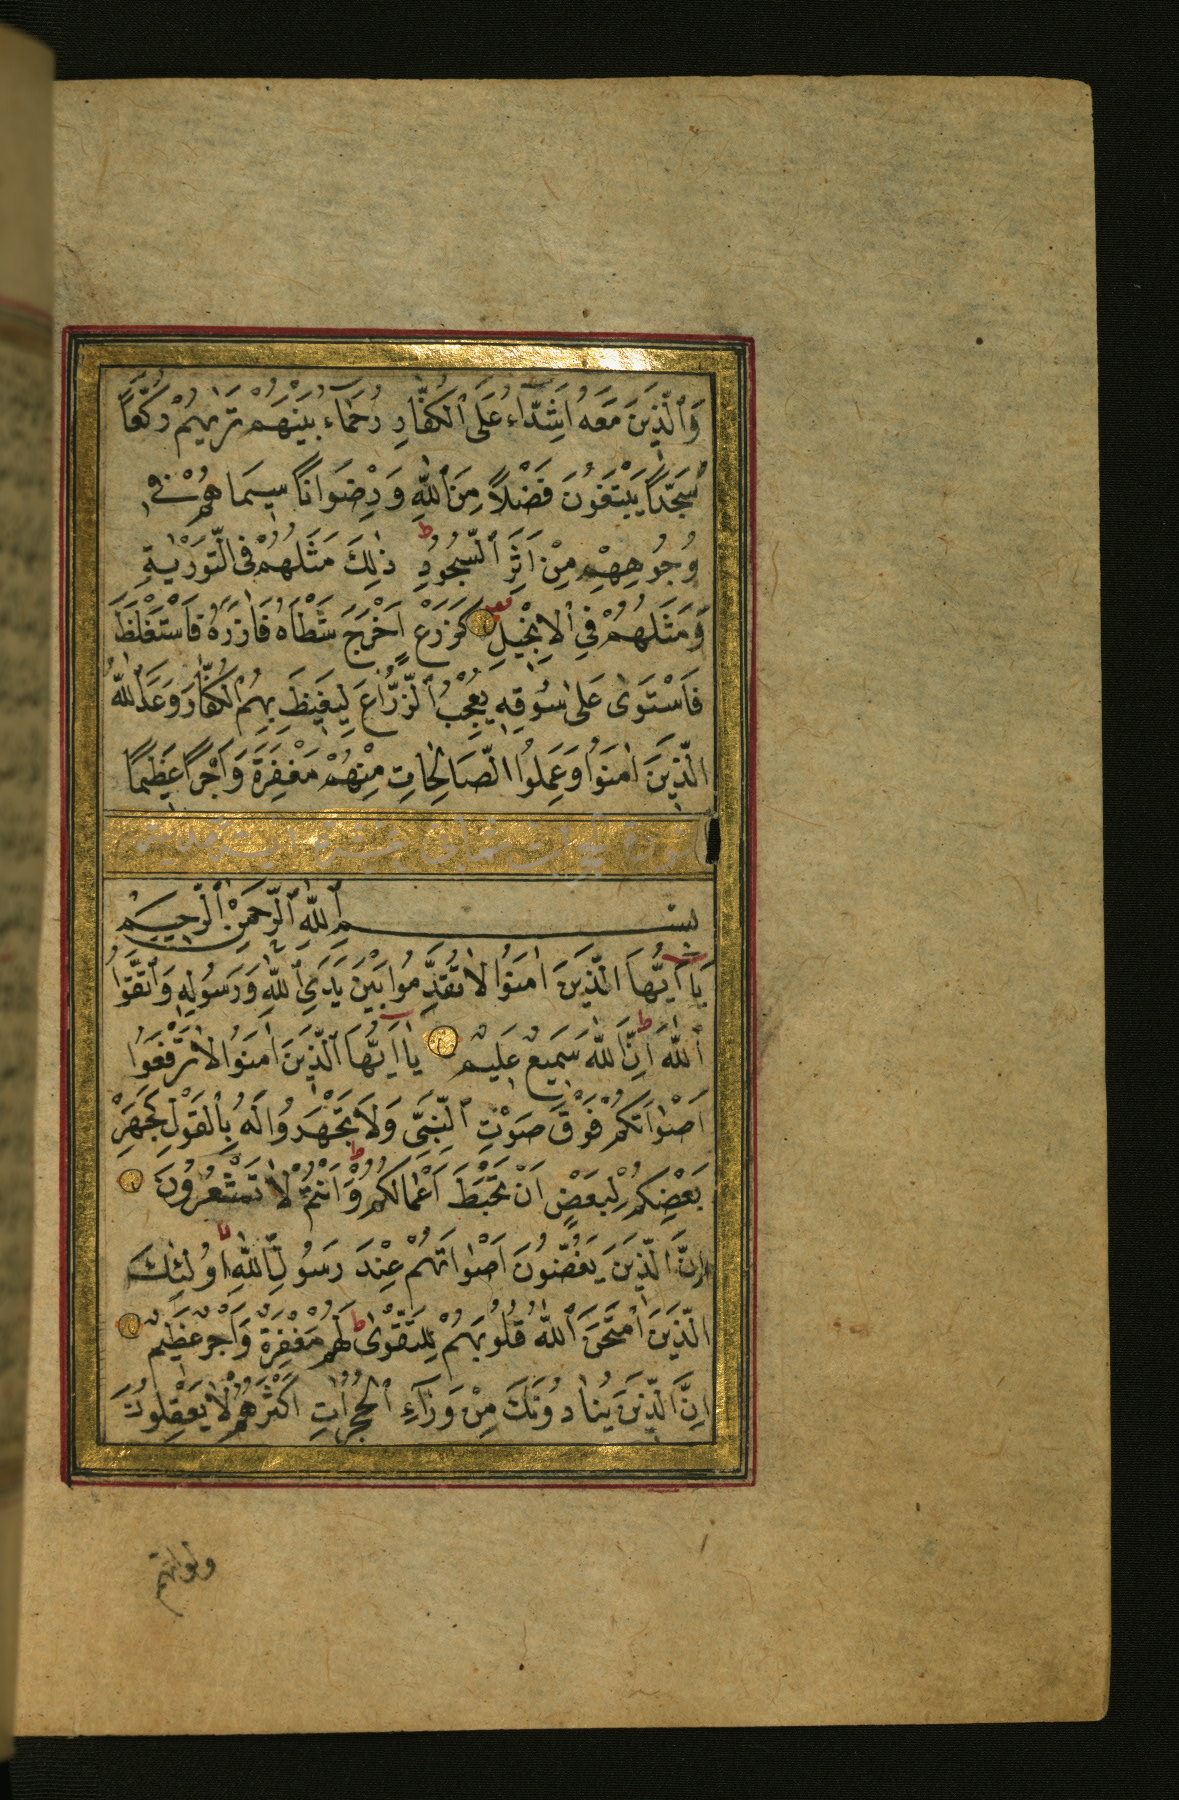 وَٱلَّذِينَ مَعَهُ اَشِدَّاءُ عَلَى ٱلْكُفَّارِ رُحَمَاءُ بَيْنَهُمْ تَرٰيهُمْ رُكَّعًا
سُجَّدًا يَبْتَغُونَ فَضْلًا مِنَ ٱللّٰهِ وَرِضْوَانًا سِيمَاهُمْ فِي
وُجُوهِهِمْ مِنْ اَثَرِ ٱلسُّجُودِ ط ذٰلِكَ مَثَلُهُمْ فِى التَّوْرٰيةِ
وَمَثَلُهُمْ فِي ٱلْاِنْجِيلِ كَزَرْعٍ اَخْرَجَ شَطْاَهُ فَاٰزَرَهُ فَاسْتَغْلَظَ
فَاسْتَوٰى عَلٰى سُوقِهِ يُعْجِبُ ٱلزُّرَّاعَ لِيَغِيظَ بِهِمُ ٱلْكُفَّارَ وَعَدَ ٱللّٰهُ
الَّذِينَ اٰمَنُوا وَعَمِلُوا الصَّالِحَاتِ مِنْهُمْ مَغْفِرَةً وَاَجْرًا عَظِيمًا
سورة حجرات ثمانى عشرة
بِسْمِ ٱللّٰهِ ٱلرَّحْمٰنِ ٱلرَّحِيمِ
يَا اَيُّهَا الَّذِينَ اٰمَنُوا لَا تُقَدِّمُوا بَيْنَ يَدَيِ ٱللّٰهِ وَرَسُولِهِ وَٱتَّقُوا
ٱللّٰهَ ط اِنَّ ٱللّٰهَ سَمِيعٌ عَلِيمٌ يَا اَيُّهَا ٱلَّذِينَ اٰمَنُوا لَا تَرْفَعُوا
اَصْوَاتَكُمْ فَوْقَ صَوْتِ ٱلنَّبِيِّ وَلَا تَجْهَرُوا لَهُ بِالْقَوْلِ كَجَهْرِ
بَعْضِكُمْ لِبَعْضٍ اَنْ تَحْبَطَ اَعْمَالُكُمْ وَاَنْتُمْ لَا تَشْعُرُونَ
اِنَّ الَّذِينَ يَغُضُّونَ اَصْوَاتَهُمْ عِنْدَ رَسُولِ ٱللّٰهِ لا اُولٰئِكَ
الَّذِينَ ٱمْتَحَنَ ٱللّٰهُ قُلُوبَهُمْ لِلتَّقْوٰى ط لَهُمْ مَغْفِرَةٌ وَاَجْرٌ عَظِيمٌ
اِنَّ الَّذِينَ يُنَادُونَكَ مِنْ وَرَاءِ ٱلْحُجُرَاتِ اَكْثَرُهُمْ لَا يَعْقِلُونَ
ولو انهم